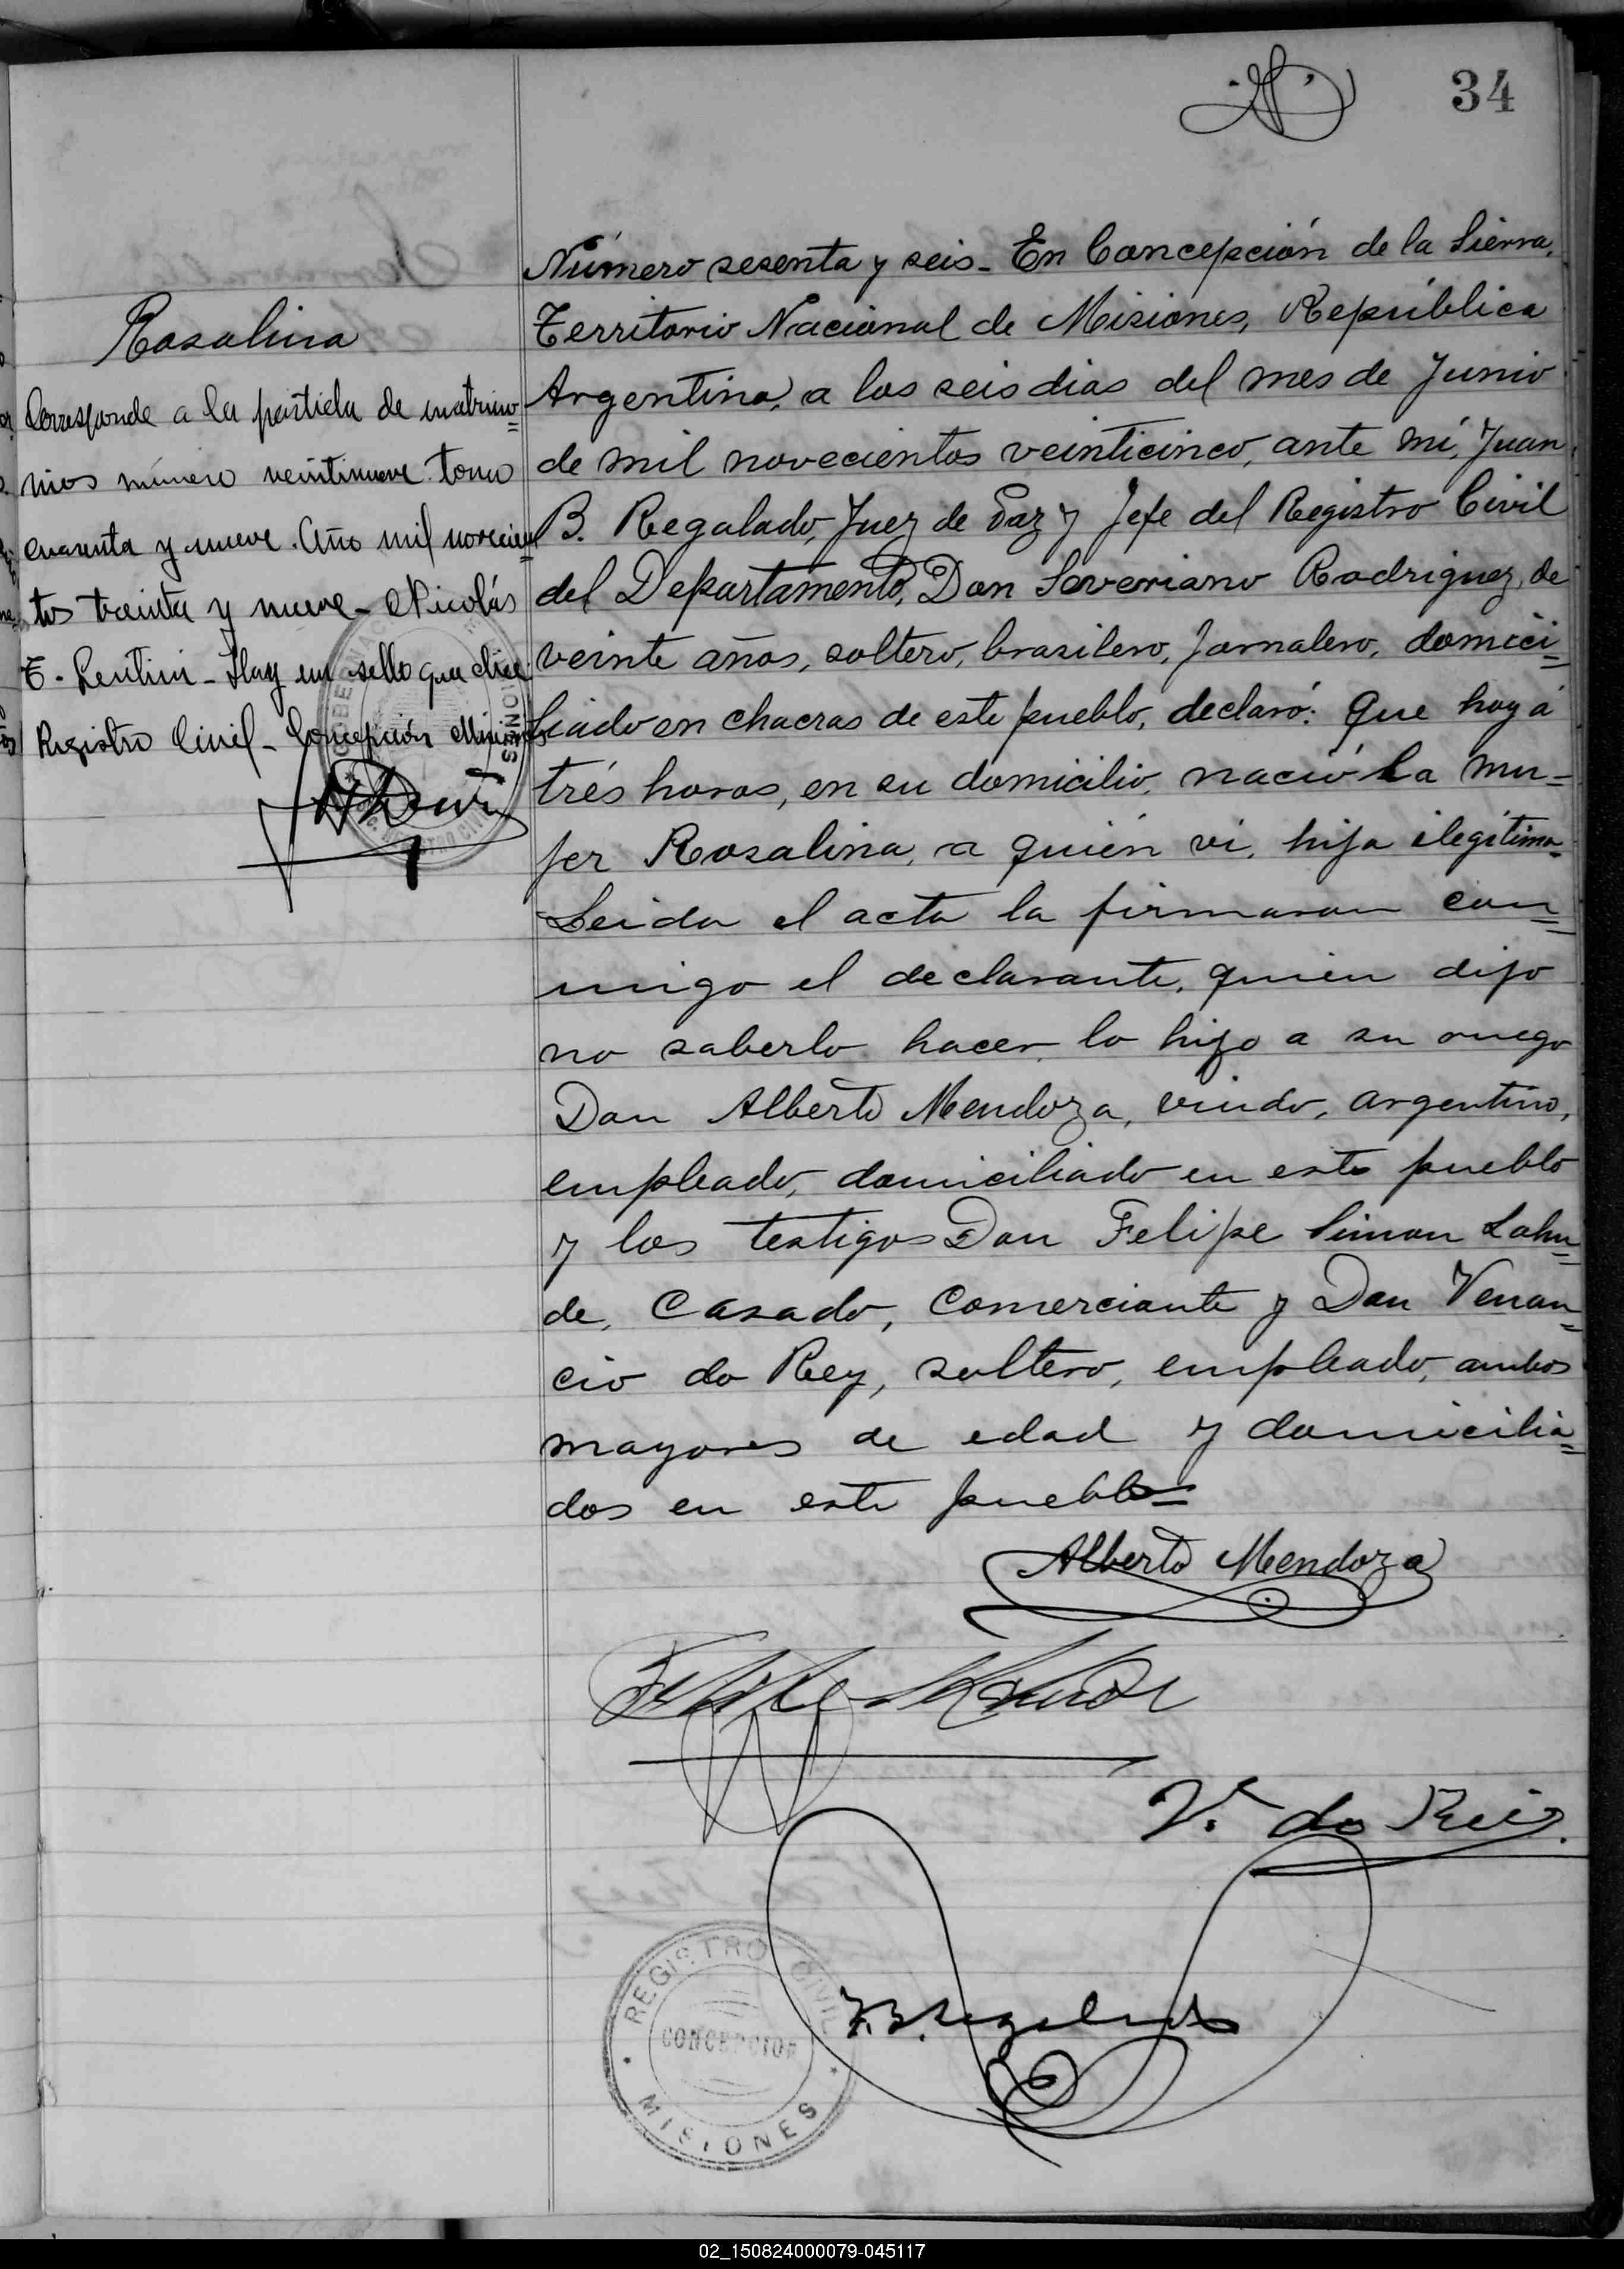 34
Número sesenta y seis - En Concepción de la Sierra,
Territorio Nacional de Misiones, República
Argentina, a los seis dias del mes de Junio
de mil novecientos veinticinco, ante mí, Juan
B. Regalado, Juez de Paz y Jefe del Registro Civil
del Departamento, Don Severiano Rodriguez, de
veinte años, soltero, brasilero, jornalero, domici=
liado en chacras de este pueblo, declaró: Que hoy á
trés horas, en su domicilio, nació la mu=
jer Rosalina, a quién vi, hija ilegítima.
Leida el acta la firmaron con=
migo el declarante, quien dijo
no saberlo hacer lo hizo a su ruego
Don Alberto Mendoza, viudo, argentino,
empleado, domiciliado en este pueblo
y los testigos Don Felipe Simon Lahu=
de, Casado, Comerciante y Don Venan=
cio do Rey, soltero, empleado, ambos
mayores de edad y domicilia=
dos en este pueblo=
Alberto Mendoza
Felipe S Lahude
V. do Reis.
J.B. Regalado
REGISTRO CIVIL
CONCEPCION
MISIONES
Rosalina
Corresponde a la partida de matrimo=
nios número veintinueve tomo
cuarenta y nueve. Año mil novecien=
tos treinta y nueve - Nicolás
T. Lentini - Hay un sello que dice
Registro Civil - Concepción Misiones
02_150824000079-045117